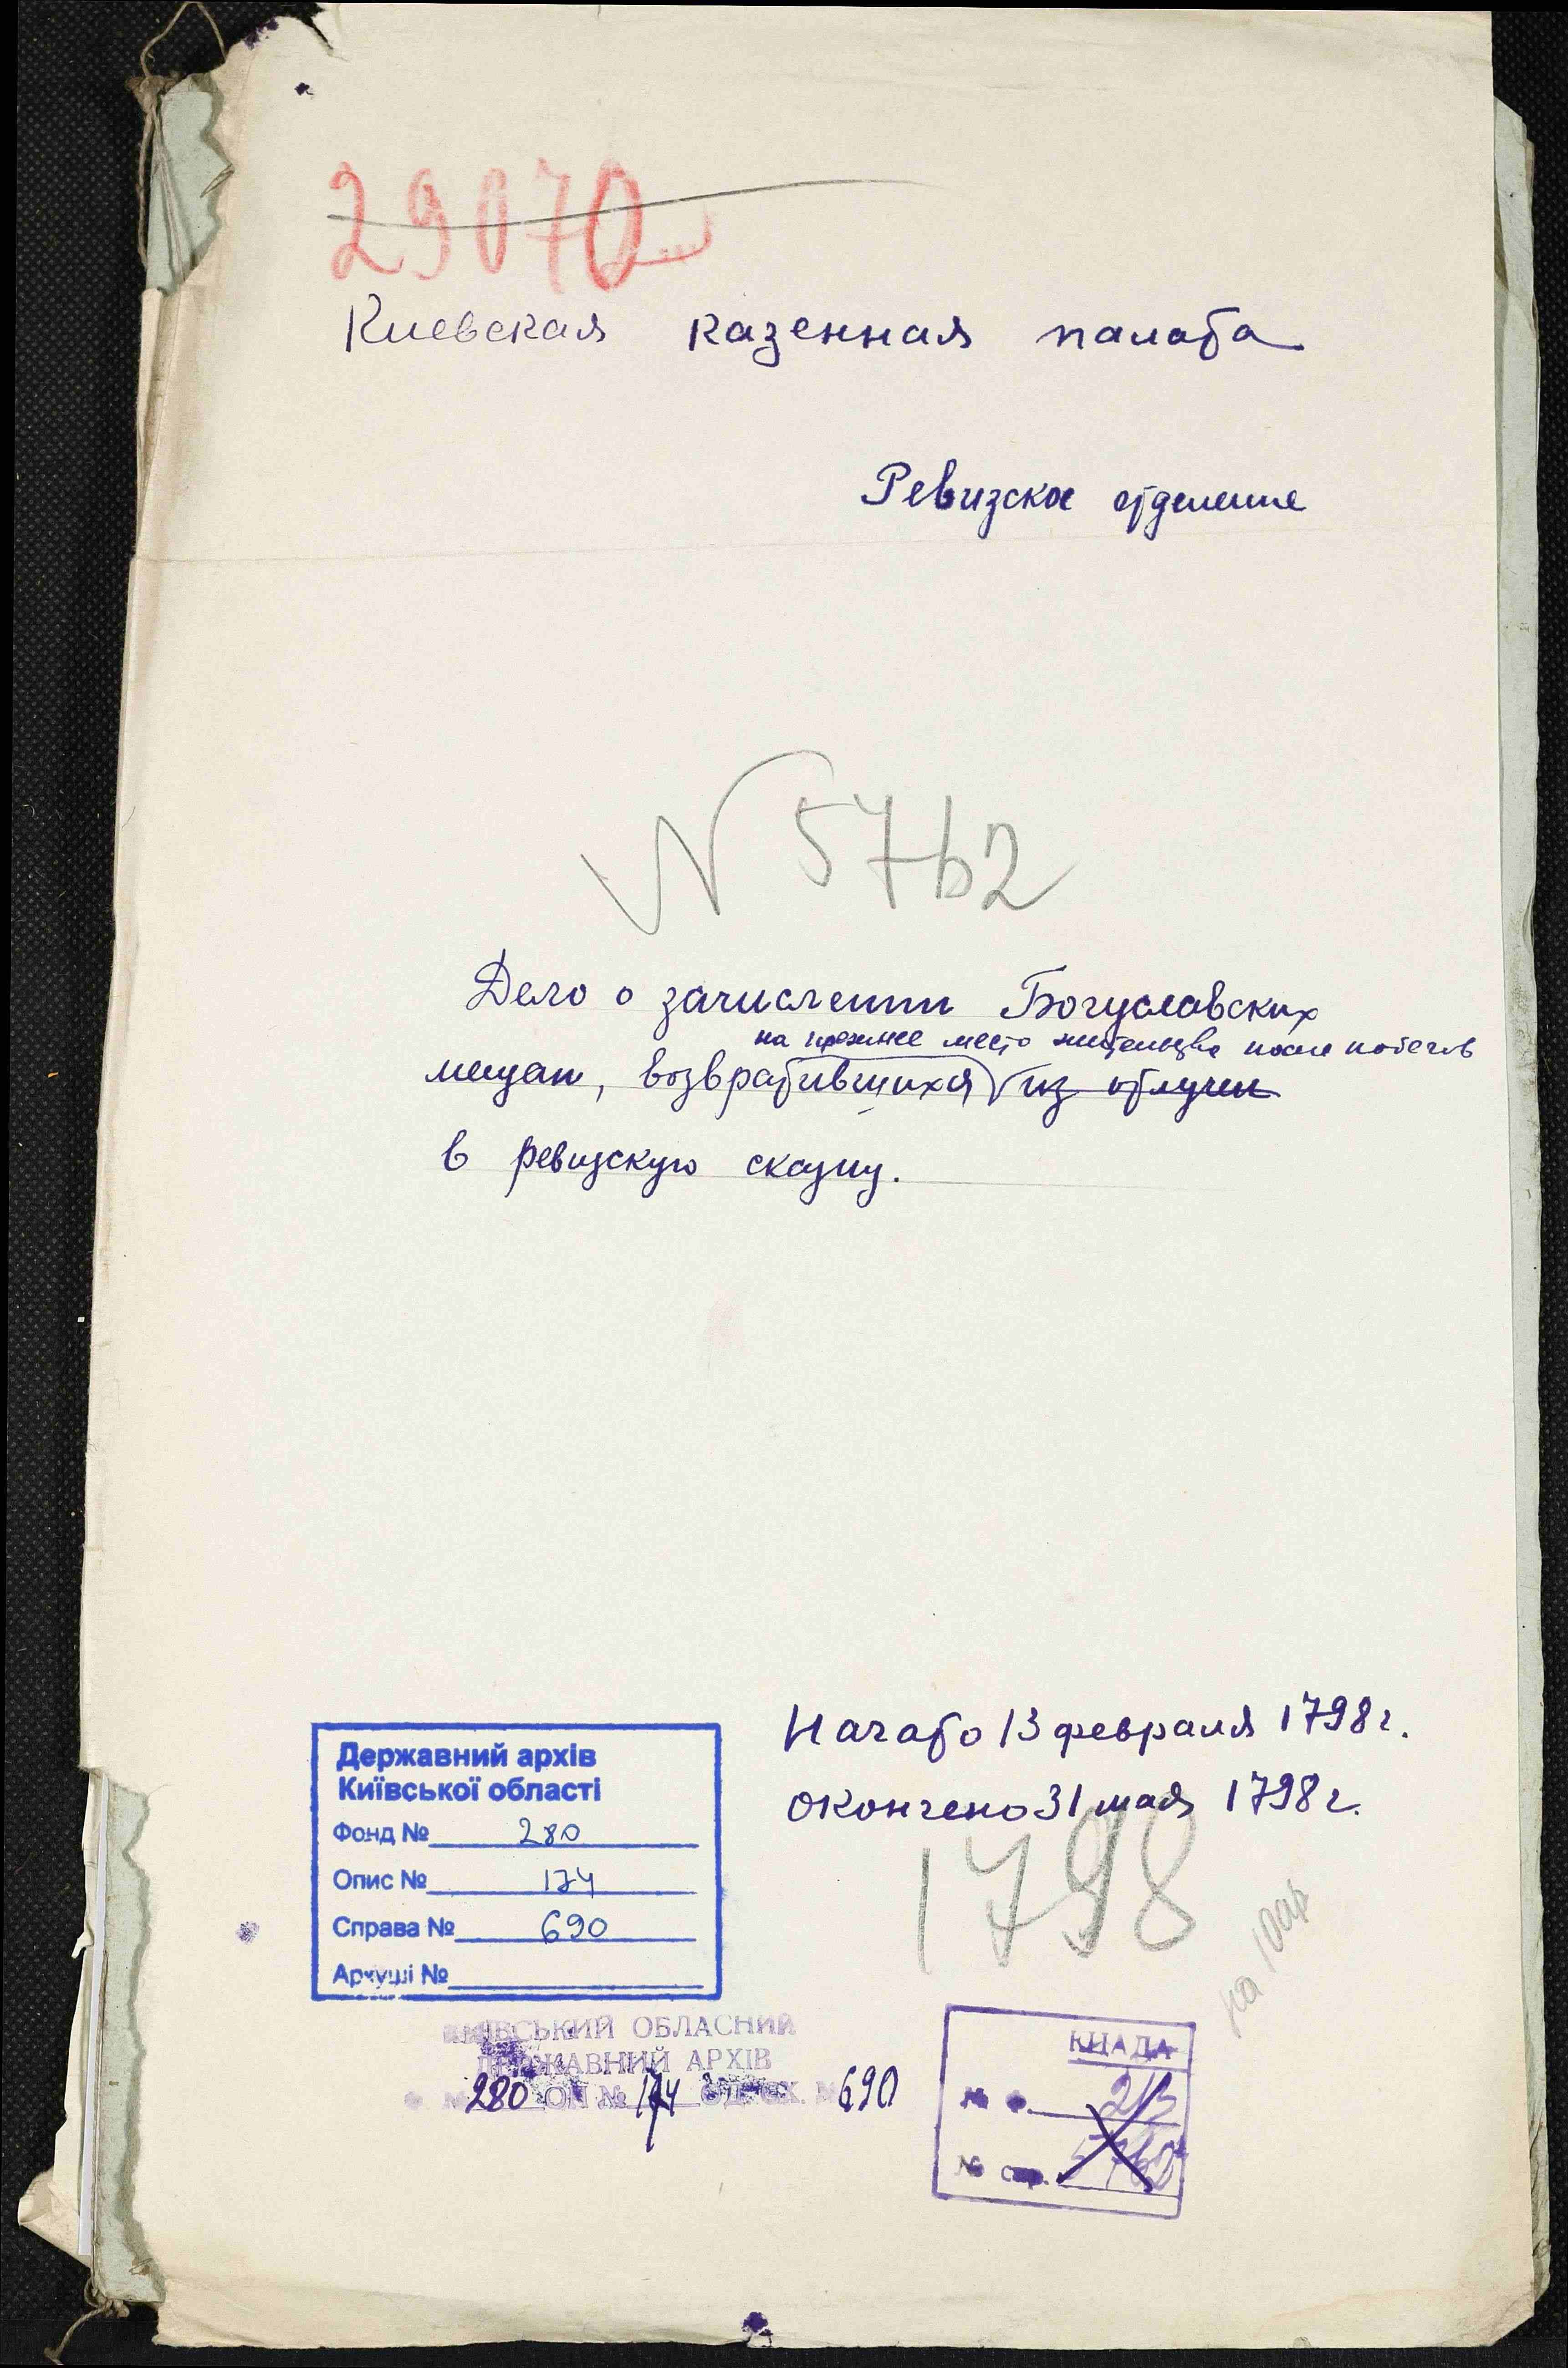 29070
Киевская казенная палата
Ревизское отделение
N 5762
Дело о зачислении Богуславских
на прежнее место жительства после побегов
мещан, возвратившихся из отлучки
в ревизскую сказку.
Начато 13 февраля 1798 г.
окончено 31 мая 1798 г.
1798
Державний архів
Київської області
Фонд № 280
Опис № 174
Справа № 690
Аркуші №
КИЇВСЬКИЙ ОБЛАСНИЙ
ДЕРЖАВНИЙ АРХІВ
№ 280 ОП № 174 ОД. ЗХ. № 690
на 10 арк
КЦАДА
№ ф. 2/3
№ спр. 5762